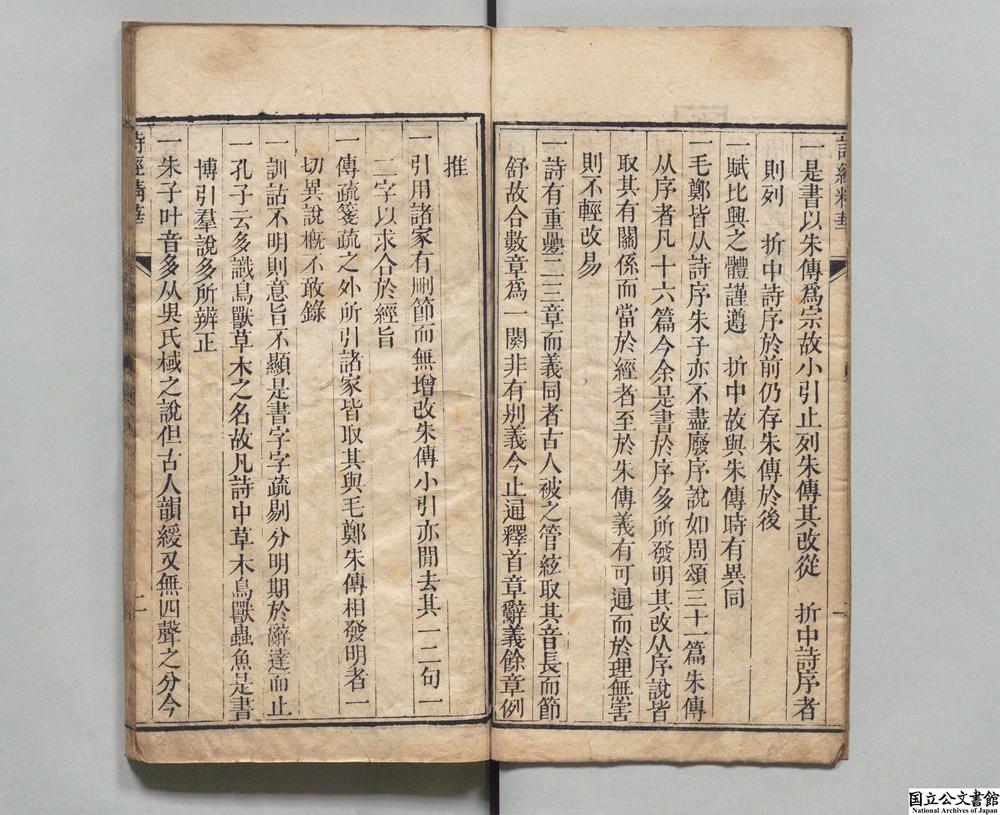 詩經精華
一是書以朱傳爲宗故小引止列朱傳其改從　折中詩序者
則列　折中詩序於前仍存朱傳於後
一賦比興之體謹遵　折中故與朱傳時有異同
一毛鄭皆从詩序朱子亦不盡廢序說如周頌三十一篇朱傳
从序者凡十六篇今余是書於序多所發明其改从序說皆
取其有關係而當於經者至於朱傳義有可通而於理無害
則不輕改易
一詩有重疊二三章而義同者古人被之管絃取其音長而節
舒故合數章爲一闋非有別義今止通釋首章辭義餘章例
推
一引用諸家有刪節而無增改朱傳小引亦閒去其一二句一
二字以求合於經旨
一傳疏箋疏之外所引諸家皆取其與毛鄭朱傳相發明者一
切異說概不敢錄
一訓詁不明則意旨不顯是書字字疏剔分明期於辭達而止
一孔子云多識鳥獸草木之名故凡詩中草木鳥獸蟲魚是書
博引羣說多所辨正
一朱子叶音多从吳氏棫之說但古人韻緩又無四聲之分今
詩經精華
二
国立公文書館
National Archives of Japan